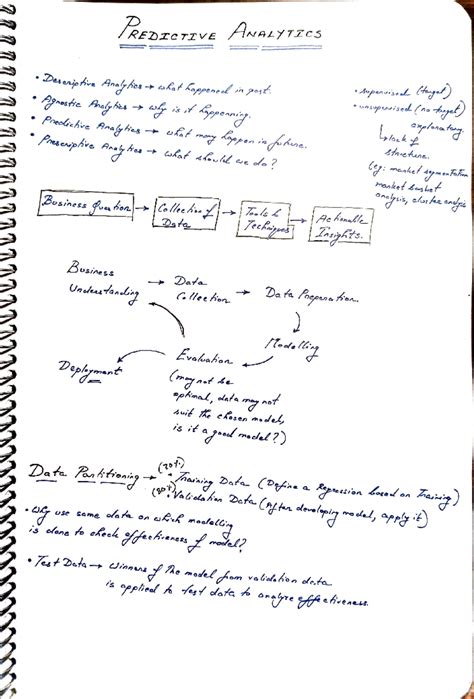 PREDICTIVE ANALYTICS
• Descriptive Analytics → what happened in past.
• Agnostic Analytics → why is it happenning.
• Predictive Analytics → what may happen in future.
• Prescriptive Analytics → what should we do?
• supervised (target)
• unsupervised (no target)
exploratory
↳ lack of
structure.
(eg: market segmentation
market basket
analysis, cluster analysis
Business Question → Collection of Data → Tools & Techniques → Actionable Insights.
Business Understanding → Data Collection → Data Preparation
Modelling
Evaluation
Deployment
(may not be
optimal, data may not
suit the chosen model,
is it a good model?)
Data Partitioning → • Training Data (Define a Regression based on Training)
• Validation Data (After developing model, apply it)
• Why use same data on which modelling
is done to check effectiveness of model?
• Test Data → Winners of the model from validation data
is applied to test data to analyze effectiveness.